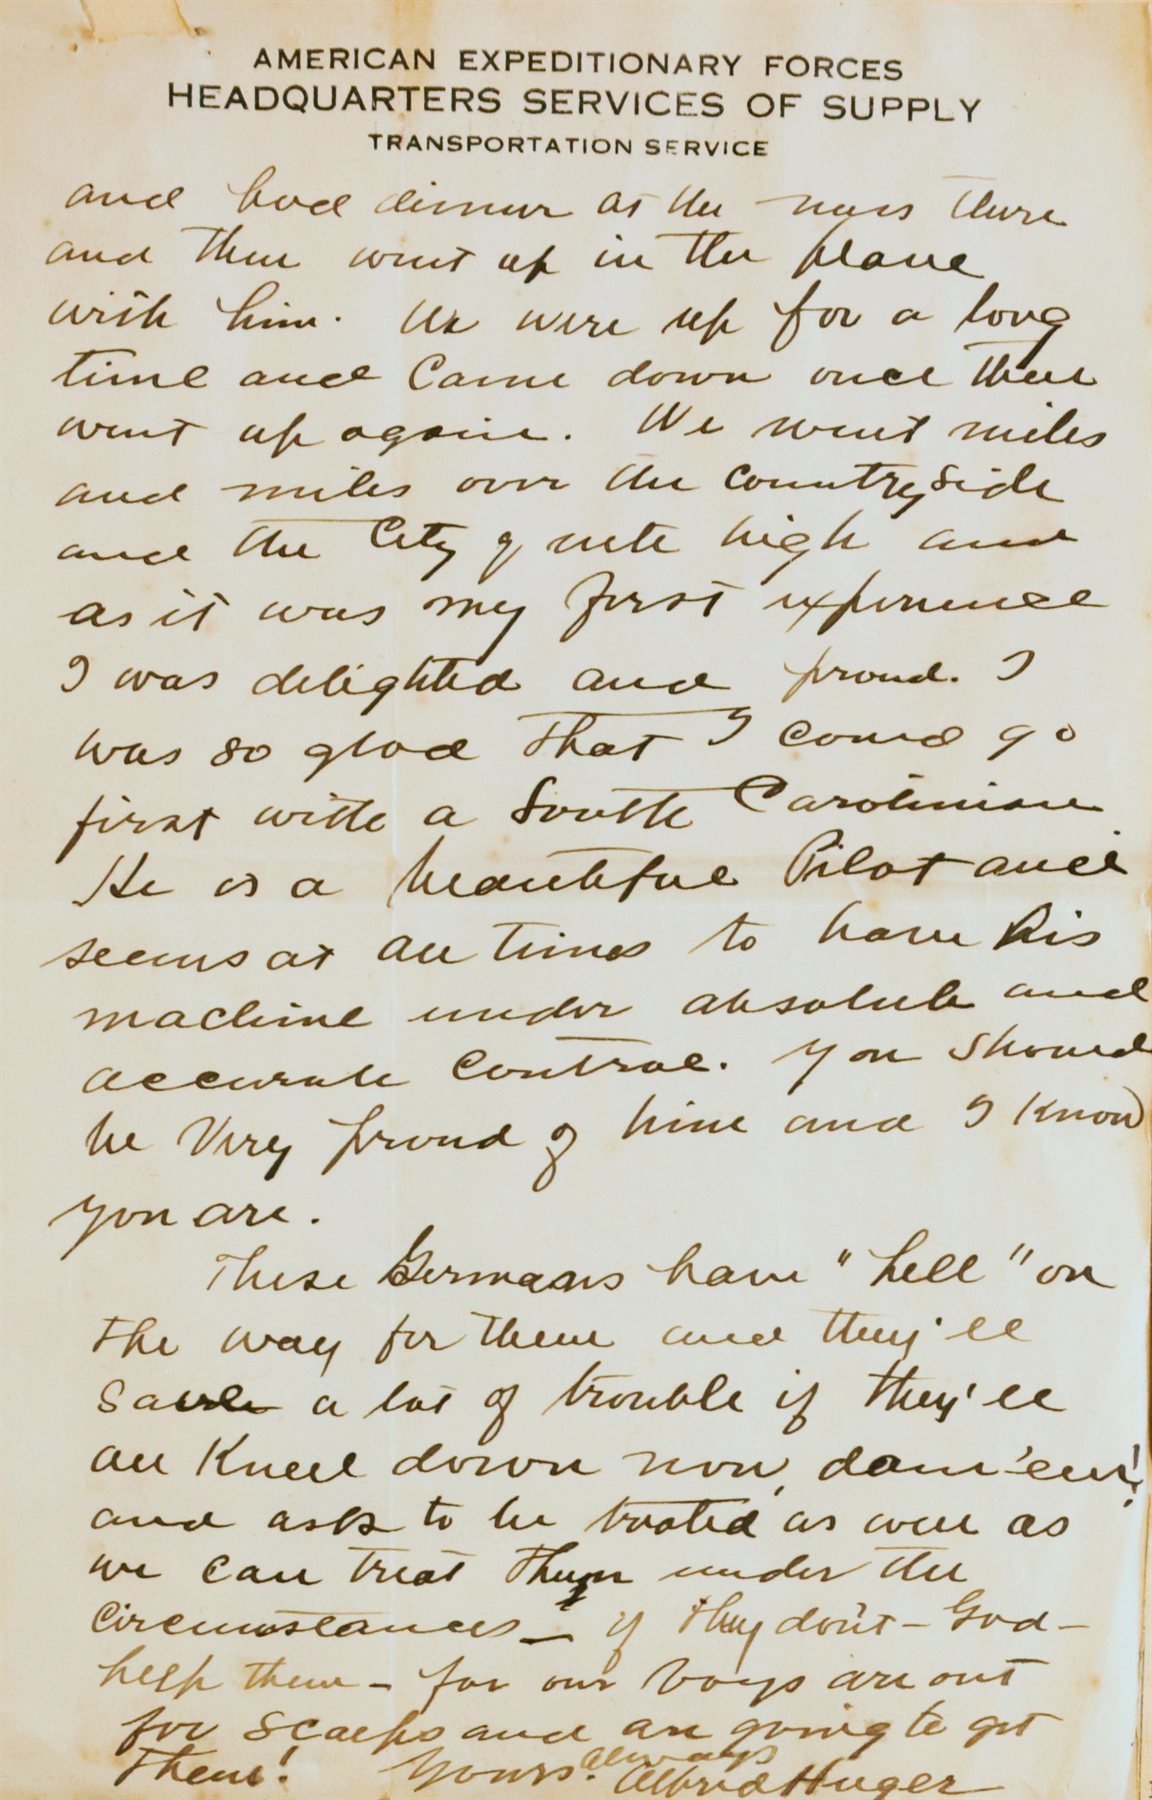 AMERICAN EXPEDITIONARY FORCES
HEADQUARTERS SERVICES OF SUPPLY
TRANSPORTATION SERVICE
and had dinner at the mess there
and then went up in the plane
with him. We were up for a long
time and came down once then
went up again. We went miles
and miles over the countryside
and the City quite high and
as it was my first experience
I was delighted and proud. I
was so glad that I could go
first with a South Carolinian
He is a beautiful Pilot and
seems at all times to have his
machine under absolute and
accurate control. You should
be very proud of him and I know
you are.
These Germans have "hell" on
the way for them and they'll
save a lot of trouble if they'll
all kneel down now, dam'em!
and ask to be treated as well as
we can treat them under the
circumstances — if they don't — God —
help them — for our boys are out
for scalps and are going to get
them! Yours always
Alfred Huger